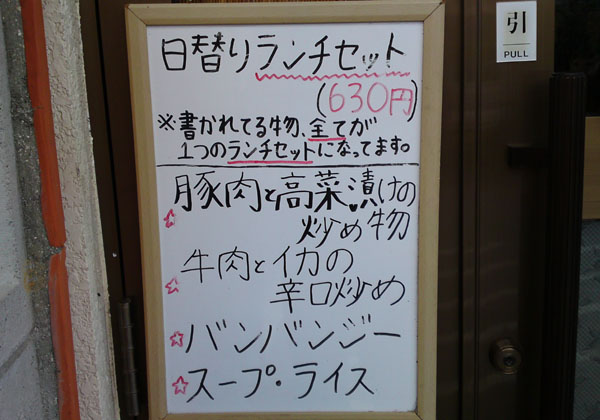 日替りランチセット
(630円)
※書かれてる物、全てが
1つのランチセットになってます。
☆豚肉と高菜漬けの
炒め物
☆牛肉とイカの
辛口炒め
☆バンバンジー
☆スープ・ライス
引
PULL